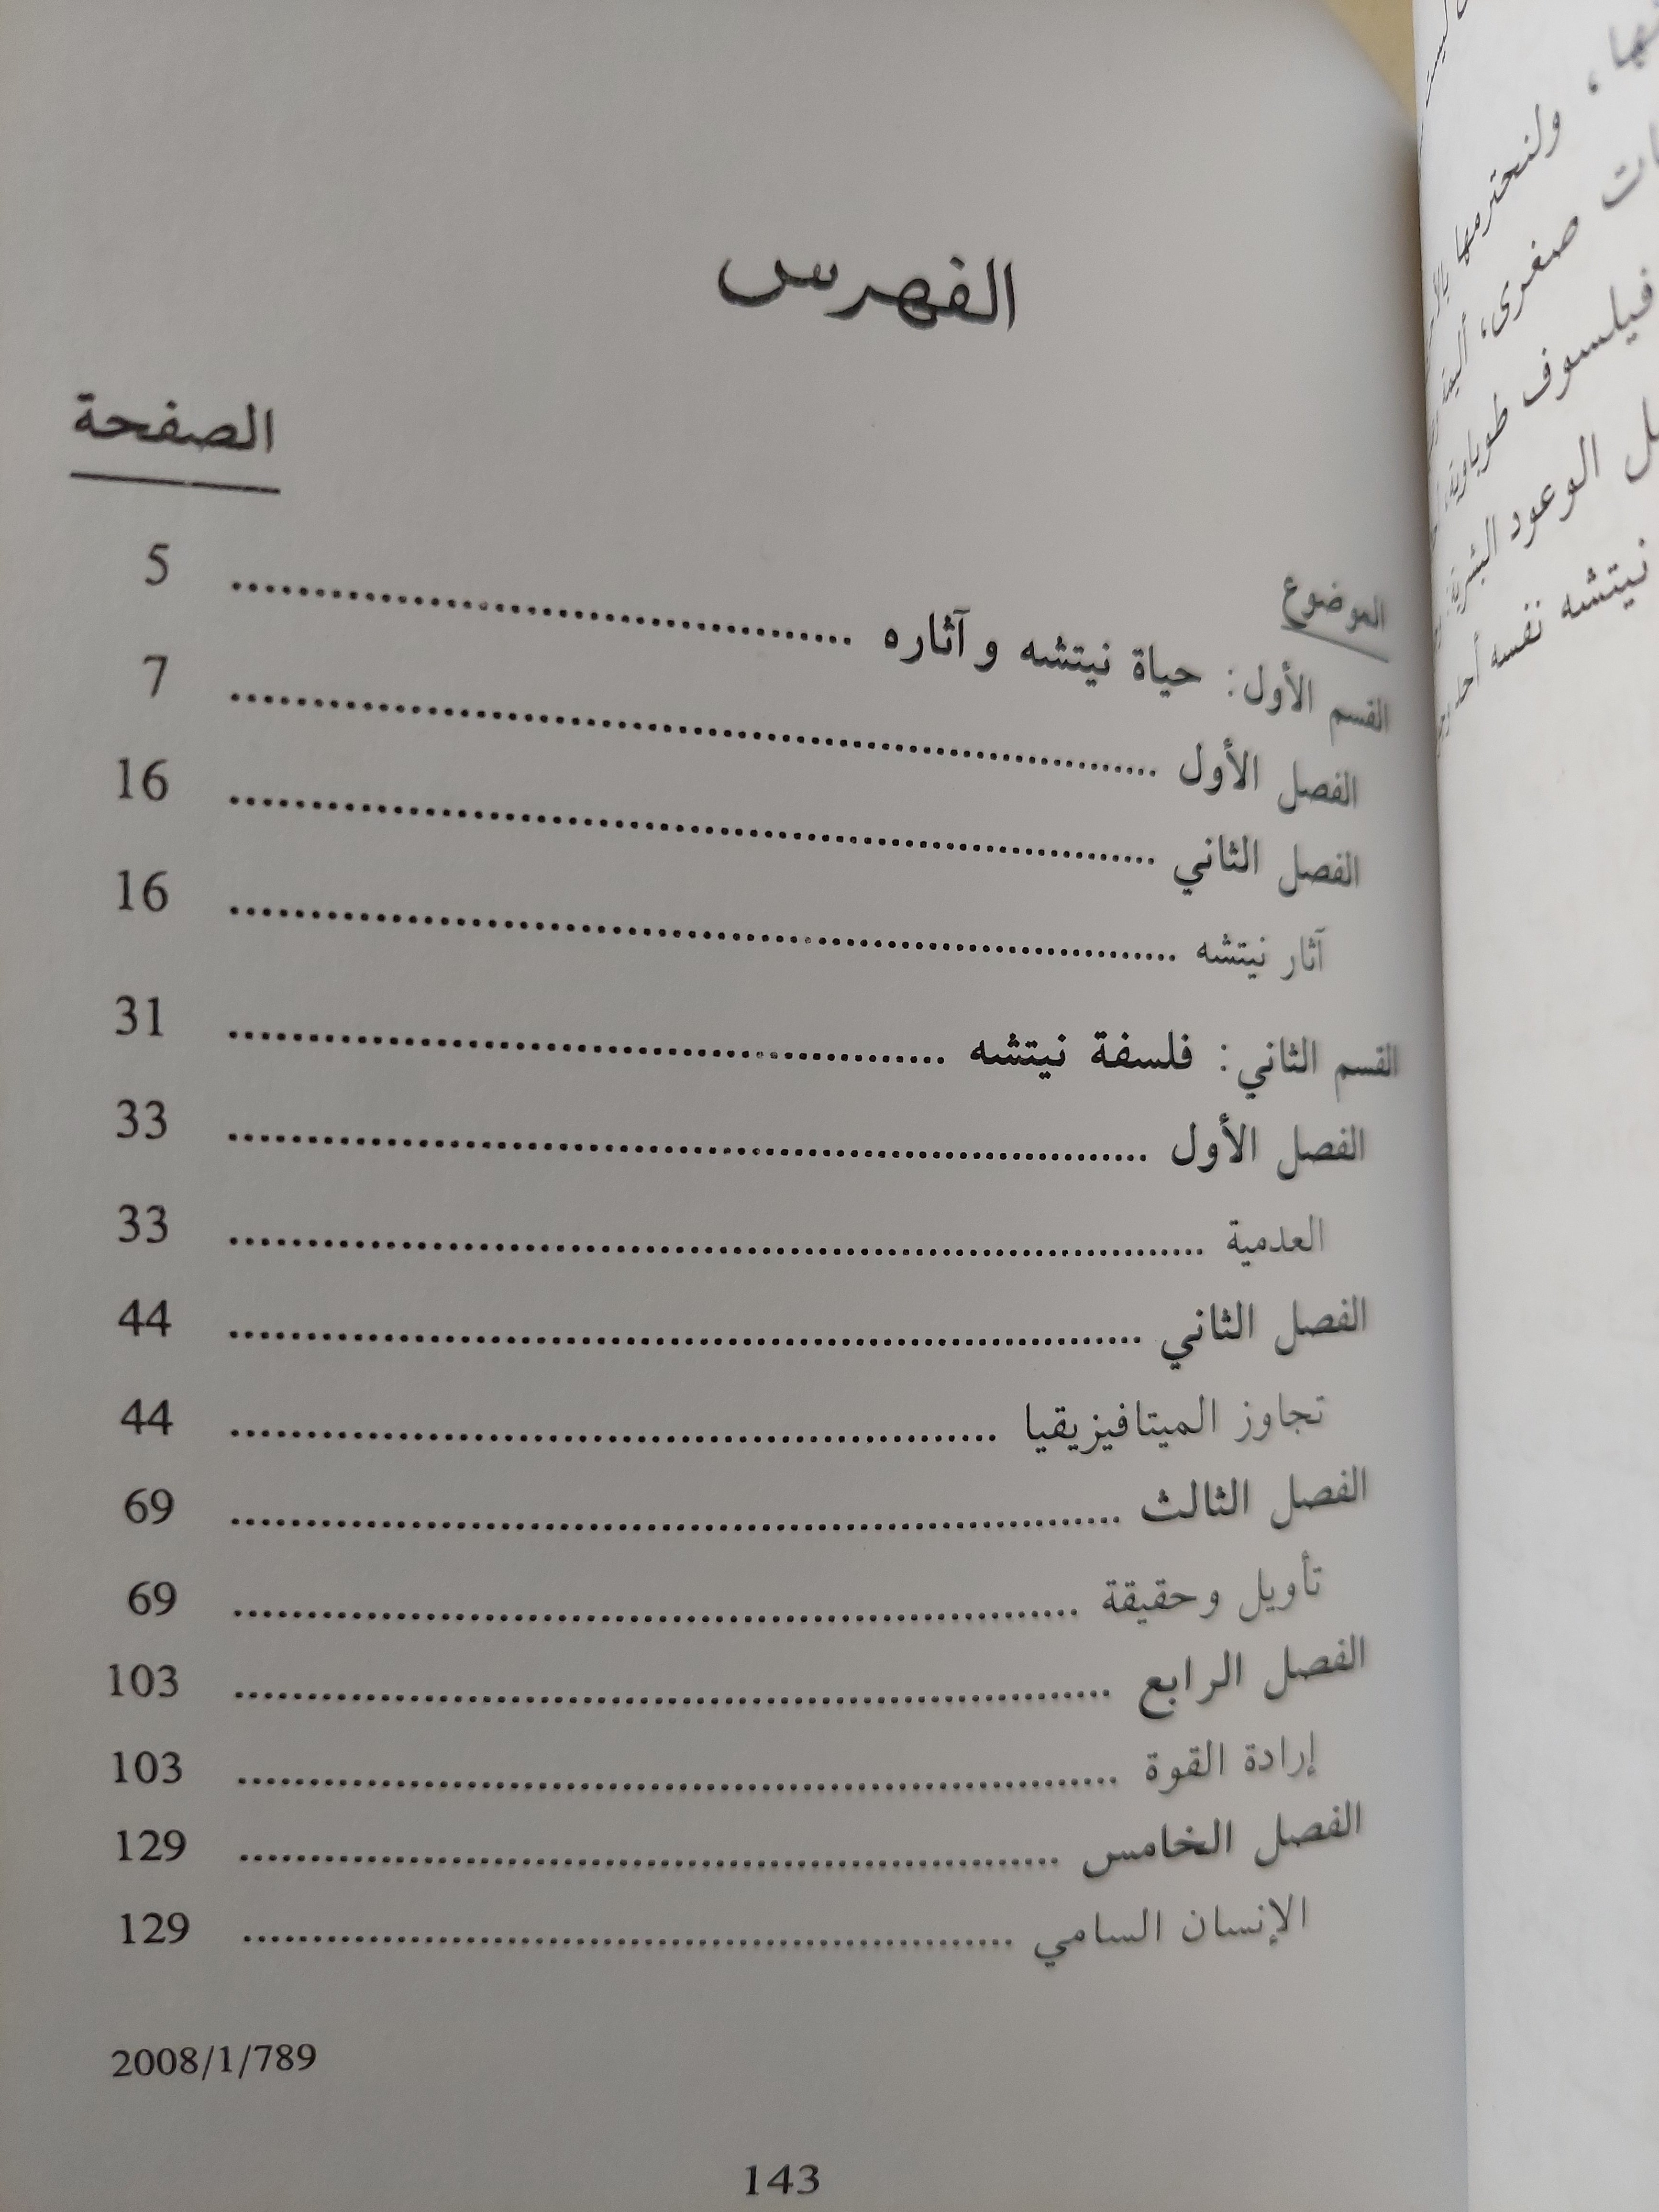 الفهرس
الصفحة
الموضوع
القسم الأول: حياة نيتشه وآثاره ........ 5
الفصل الأول ........ 7
الفصل الثاني ........ 16
آثار نيتشه ........ 16
القسم الثاني: فلسفة نيتشه ........ 31
الفصل الأول ........ 33
العدمية ........ 33
الفصل الثاني ........ 44
تجاوز الميتافيزيقيا ........ 44
الفصل الثالث ........ 69
تأويل وحقيقة ........ 69
الفصل الرابع ........ 103
إرادة القوة ........ 103
الفصل الخامس ........ 129
الإنسان السامي ........ 129
2008/1/789
143
ولنحترمها
صغرى،
فيلسوف
الوعود
نيتشه نفسه